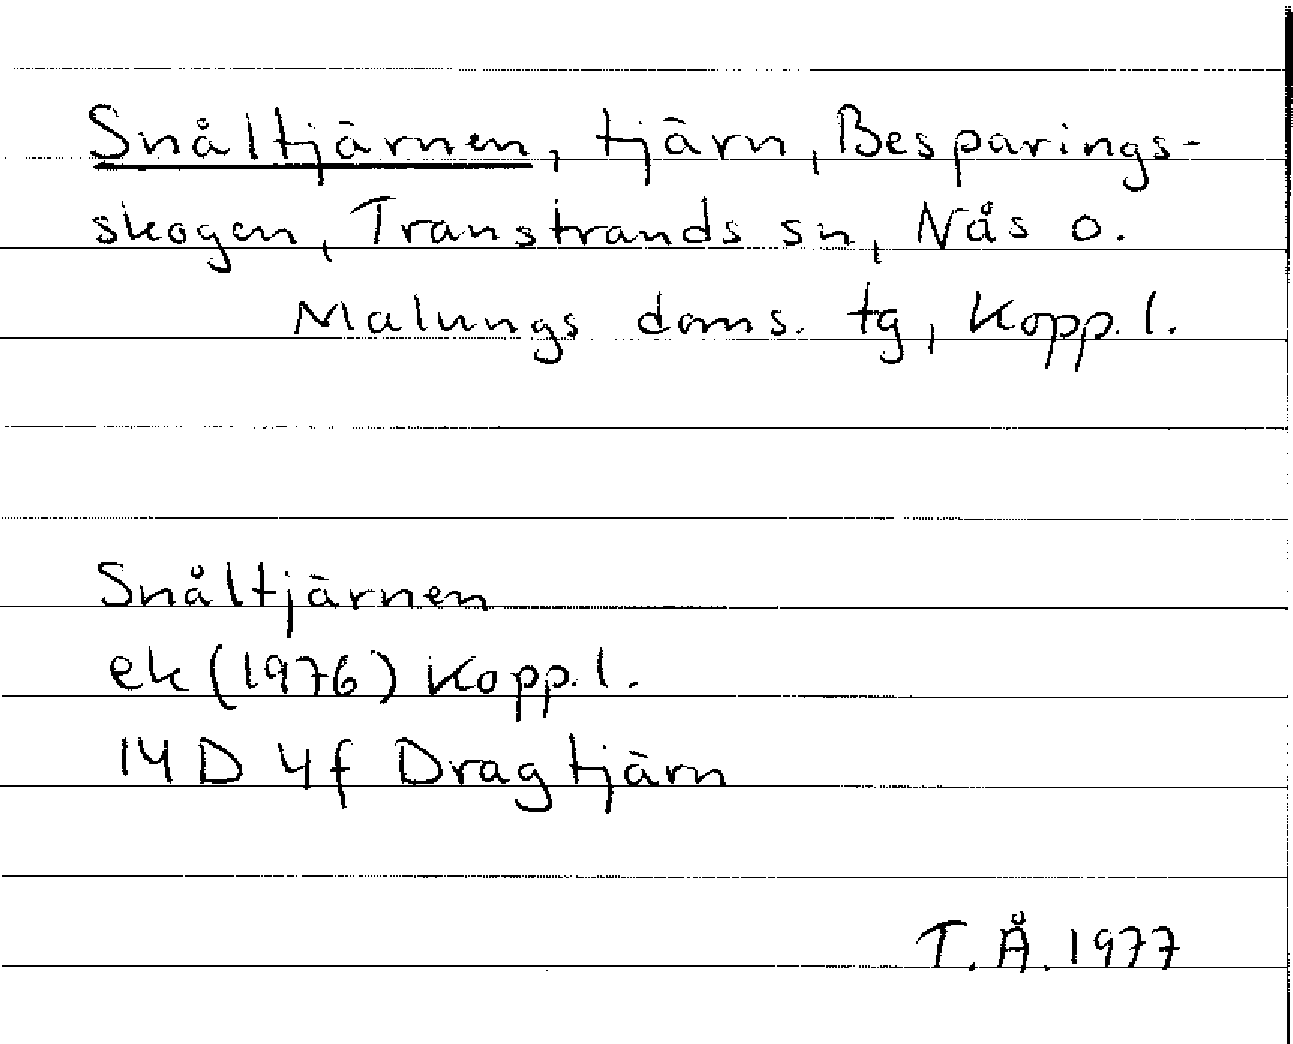 Snåltjärnen, tjärn, Besparings-
skogen, Transtrands sn, Nås o.
Malungs doms. tg, Kopp. l.
Snåltjärnen
ek (1976) Kopp. l.
14 D 4f Dragtjärn
T. Å. 1977